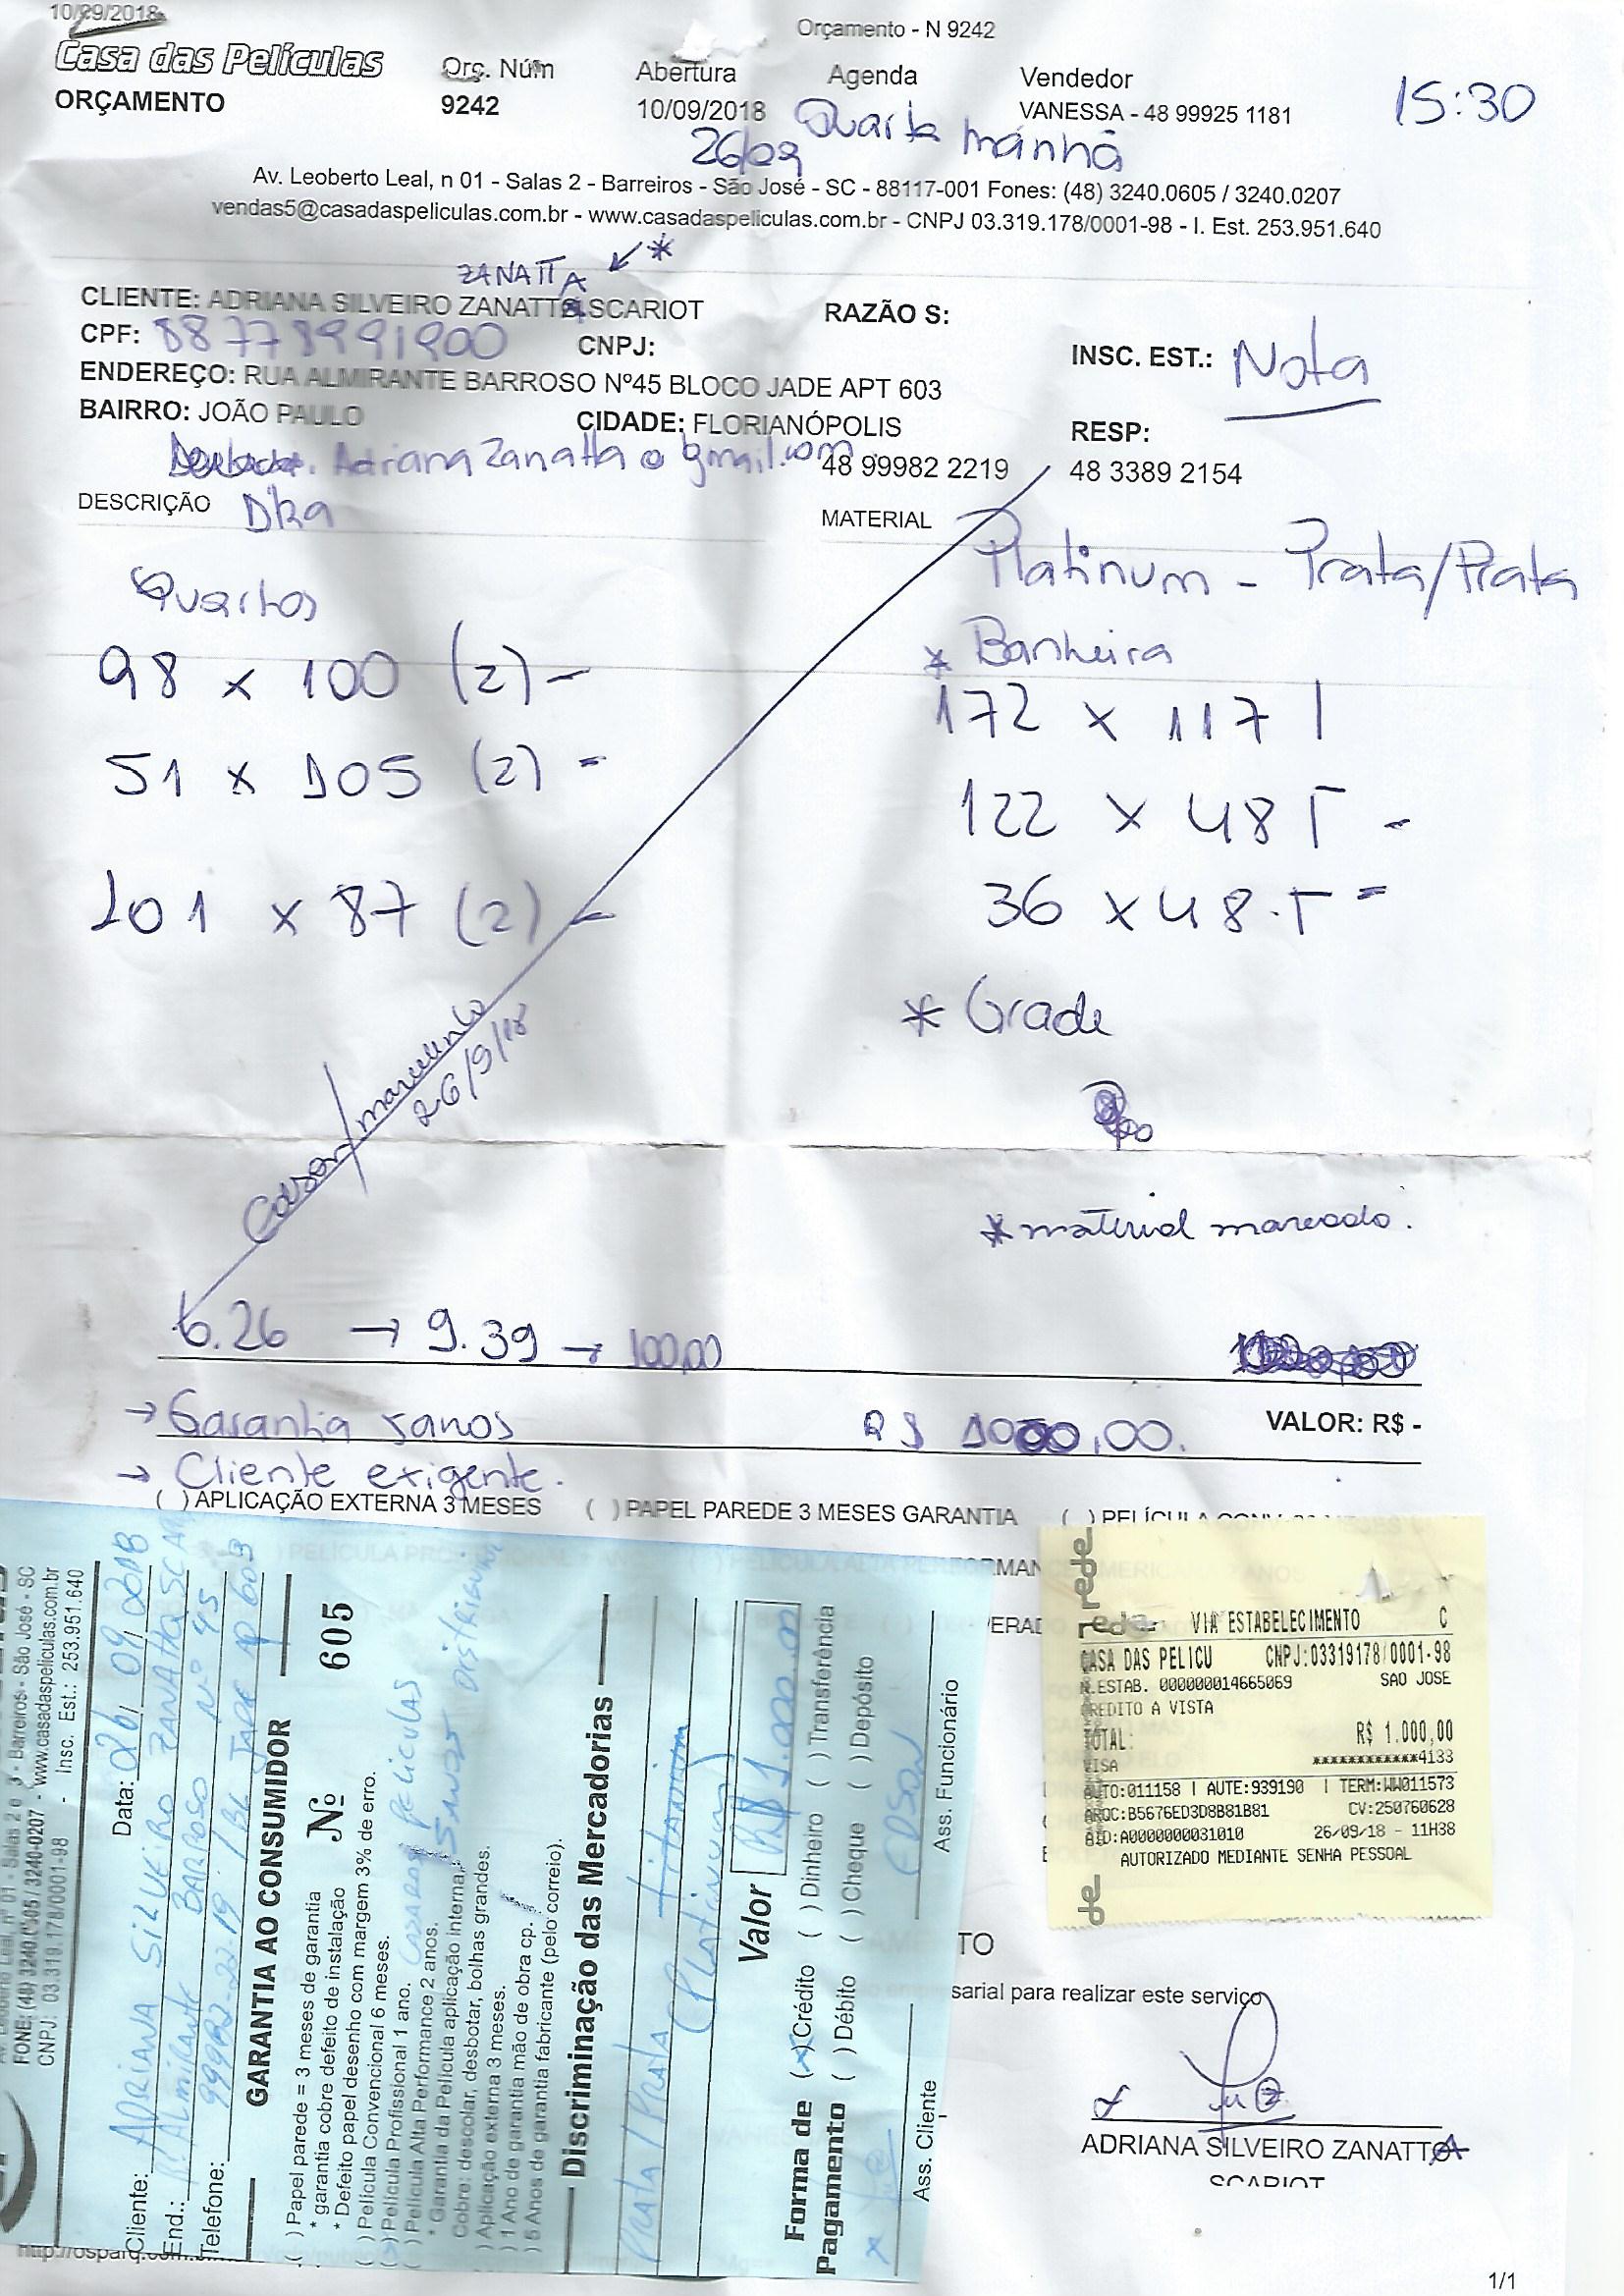 10/09/2018
Orçamento - N 9242
Casa das Películas
ORÇAMENTO
Orç. Núm
9242
Abertura
10/09/2018
26/09
Agenda
Quarta manhã
Vendedor
VANESSA - 48 99925 1181
15:30
Av. Leoberto Leal, n 01 - Salas 2 - Barreiros - São José - SC - 88117-001 Fones: (48) 3240.0605 / 3240.0207
vendas5@casadaspeliculas.com.br - www.casadaspeliculas.com.br - CNPJ 03.319.178/0001-98 - I. Est. 253.951.640
ZANATTA
CLIENTE: ADRIANA SILVEIRO ZANATTA SCARIOT
RAZÃO S:
CPF: 88778991900
CNPJ:
INSC. EST.: Nota
ENDEREÇO: RUA ALMIRANTE BARROSO Nº45 BLOCO JADE APT 603
BAIRRO: JOÃO PAULO
CIDADE: FLORIANÓPOLIS
RESP:
AdrianaZanatta@gmail.com
48 99982 2219
48 3389 2154
DESCRIÇÃO
MATERIAL
Platinum - Prata/Prata
Quartos
98 x 100 (2) -
51 x 105 (2) -
101 x 87 (2) -
* Banheira
172 x 117 |
122 x 48 Γ -
36 x 48 . Γ -
* Grade
Edson/marcelinho
26/9/18
* material marcado.
6.26 → 9.39 → 100,00
→ Garantia 5 anos
R$ 1000,00.
VALOR: R$ -
→ Cliente exigente.
( ) APLICAÇÃO EXTERNA 3 MESES
( ) PAPEL PAREDE 3 MESES GARANTIA
3 - Barreiros - São José - SC
FONE: (48) 3240.0605 / 3240-0207 - www.casadaspeliculas.com.br
CNPJ: 03.319.178/0001-98 - Insc. Est.: 253.951.640
Data: 26/09/2018
Cliente: ADRIANA SILVEIRO ZANATTA SCAR
End.: R: Almirante BARROSO Nº 45
Telefone: 99982-22-19 / BL JADE AP 603
GARANTIA AO CONSUMIDOR Nº 605
( ) Papel parede = 3 meses de garantia
* garantia cobre defeito de instalação
* Defeito papel desenho com margem 3% de erro.
( ) Película Convencional 6 meses.
( ) Película Profissional 1 ano.
( ) Película Alta Performance 2 anos.
* Garantia da Película aplicação interna
5 ANOS DISTRIBUIDOR
Cobre: descolar, desbotar, bolhas grandes.
) Aplicação externa 3 meses.
) 1 Ano de garantia mão de obra cp.
) 5 Anos de garantia fabricante (pelo correio).
Discriminação das Mercadorias
PRATA / PRATA titanium
(Platinum)
Valor R$ 1.000,00
Forma de Pagamento
(x) Crédito ( ) Dinheiro ( ) Transferência
( ) Débito ( ) Cheque ( ) Depósito
x
EDSON
Ass. Cliente
Ass. Funcionário
rede
VIA ESTABELECIMENTO C
CASA DAS PELICU CNPJ:03319178/0001-98
N.ESTAB. 000000014665069 SAO JOSE
CREDITO A VISTA
TOTAL: R$ 1.000,00
VISA ************4133
AUTO:011158 | AUTE:939190 | TERM:WW011573
ARQC:B5676ED3D8B81B81 CV:250760628
AID:A0000000031010 26/09/18 - 11H38
AUTORIZADO MEDIANTE SENHA PESSOAL
TO
sarial para realizar este serviço
x
ADRIANA SILVEIRO ZANATTA
SCARIOT
1/1